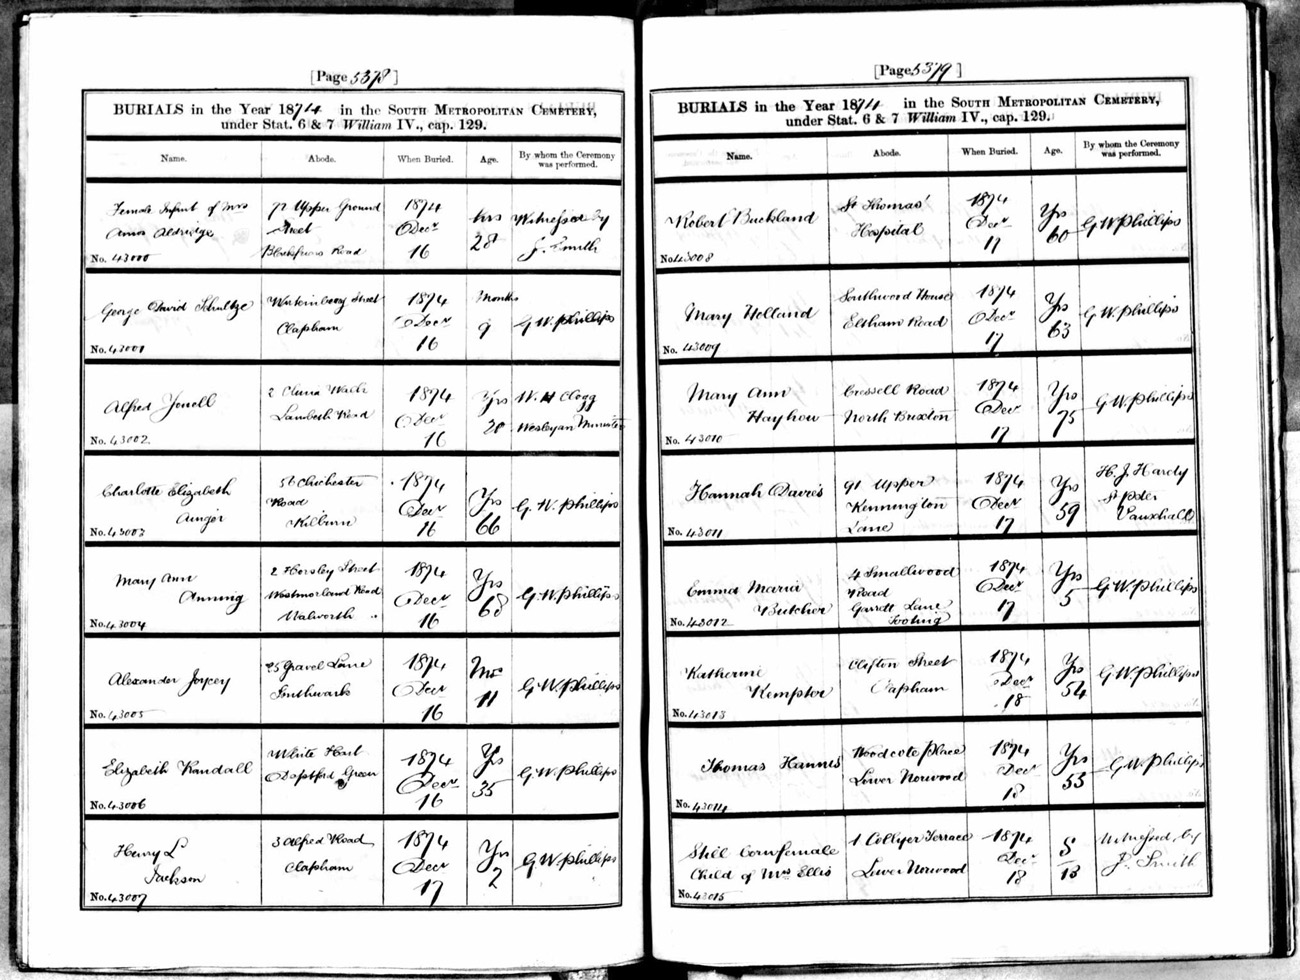 [Page 5378]
BURIALS in the Year 1874 in the SOUTH METROPOLITAN CEMETERY,
under Stat. 6 & 7 William IV., cap. 129.
Name. Abode. When Buried. Age. By whom the Ceremony was performed.
Female Infant of Mrs 72 Upper Ground 1874 hrs Witnessed by
Aldridge Street Decr 28 J. Smith
No. 43000 Blackfriars Road 16
George David Schultze Street 1874 Months
Clapham Decr 9 G W Phillips
No. 43001 16
Alfred Jewell 2 China Walk 1874 Yrs W. H Clogg
Lambeth Road Decr 28 Wesleyan Minister
No. 43002 16
Charlotte Elizabeth Chichester 1874 Yrs
Aunger Road Decr 66 G. W. Phillips
No. 43003 Kilburn 16
Mary Ann 2 Horsley Street 1874 Yrs
Anning Westmorland Road Decr 68 G. W. Phillips
No. 43004 Walworth 16
Alexander Joycey 25 Gravel Lane 1874
Southwark Decr 11 G W Phillips
No. 43005 16
Elizabeth Randall White Hart 1874 Yrs
Deptford Green Decr 35 G. W. Phillips
No. 43006 16
Henry L 3 Alfred Road 1874 Yrs
Jackson Clapham Decr 2 G W Phillips
No. 43007 17
[Page 5379]
BURIALS in the Year 1874 in the SOUTH METROPOLITAN CEMETERY,
under Stat. 6 & 7 William IV., cap. 129.
Name. Abode. When Buried. Age. By whom the Ceremony was performed.
Robert Buckland St Thomas' 1874 Yrs
Hospital Decr 60 G W Phillips
No. 43008 17
Mary Holland Southwood House 1874 Yrs
Eltham Road Decr 63 G W Phillips
No. 43009 17
Mary Ann Cressell Road 1874 Yrs
Hayhow North Brixton Decr 75 G W Phillips
No. 43010 17
Hannah Davies 91 Upper 1874 Yrs H. J. Hardy
Kennington Decr 59 St Peter
No. 43011 Lane 17 Vauxhall
Emma Maria 4 Smallwood 1874 Yrs
Butcher Road Decr 5 G W Phillips
No. 43012 Garratt Lane 17
Tooting
Katherine Clifton Street 1874 Yrs
Kempter Clapham Decr 54 G W Phillips
No. 43013 18
Thomas Hannis Woodcote Place 1874 Yrs
Lower Norwood Decr 53 G. W. Phillips
No. 43014 18
Still born female 1 Collyer Terrace 1874 S Witnessed by
Child of Mrs Ellis Lower Norwood Decr B J. Smith
No. 43015 18